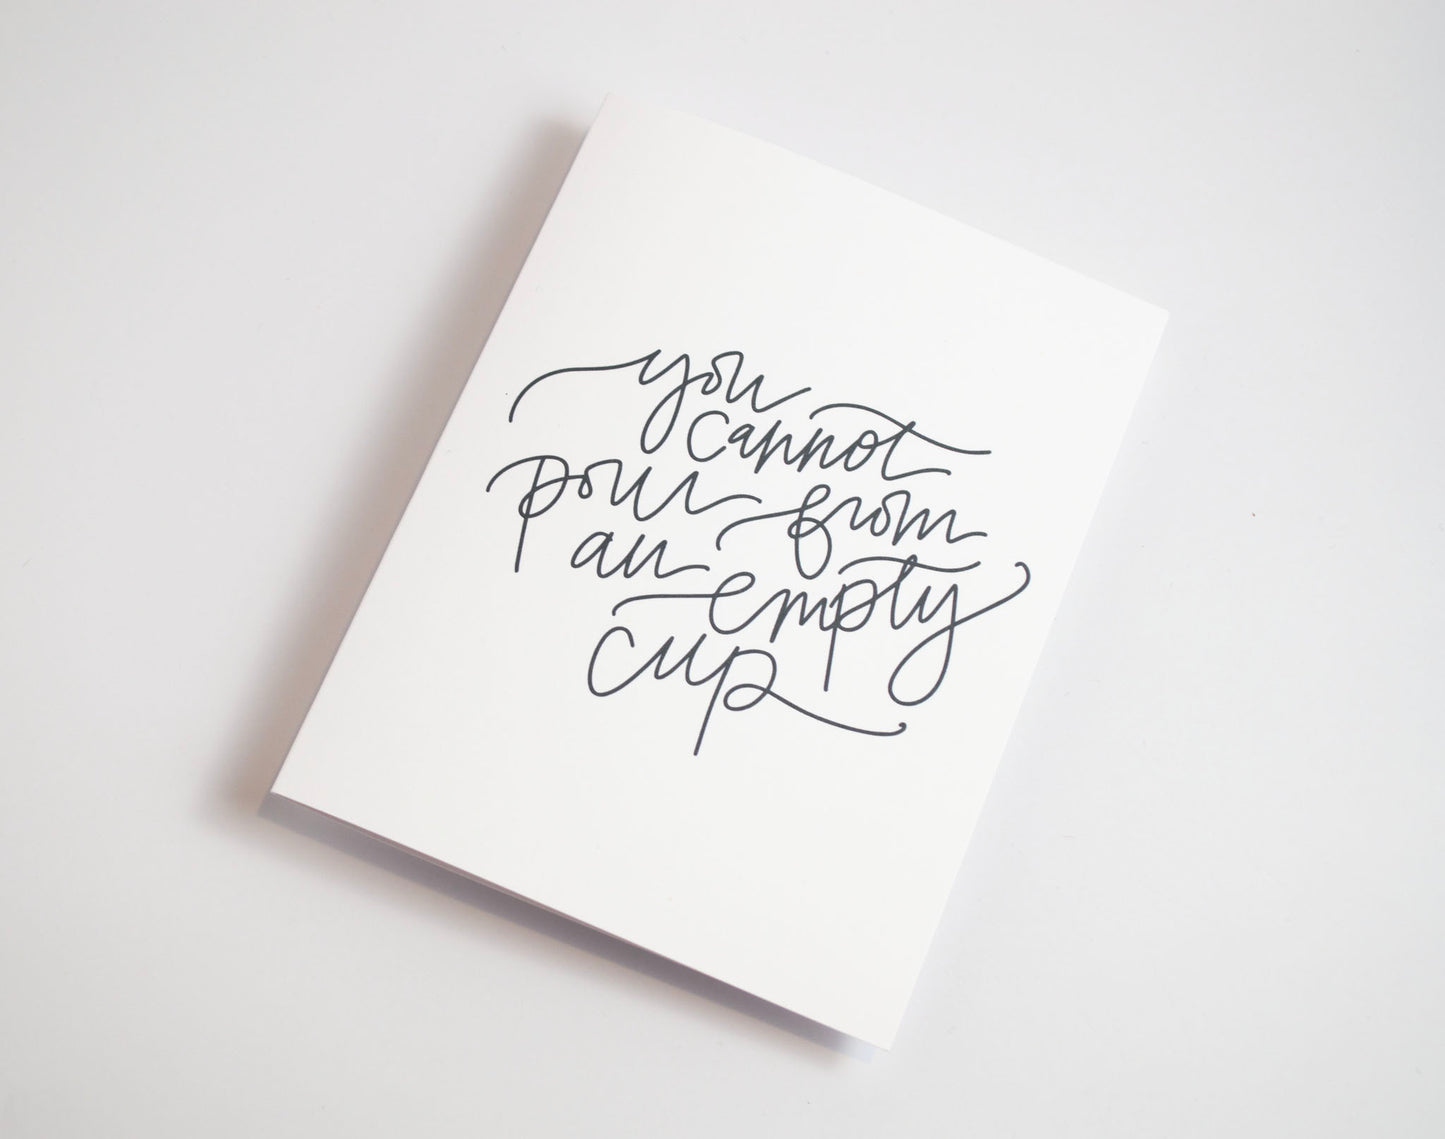 you
cannot
pour from
an empty
cup